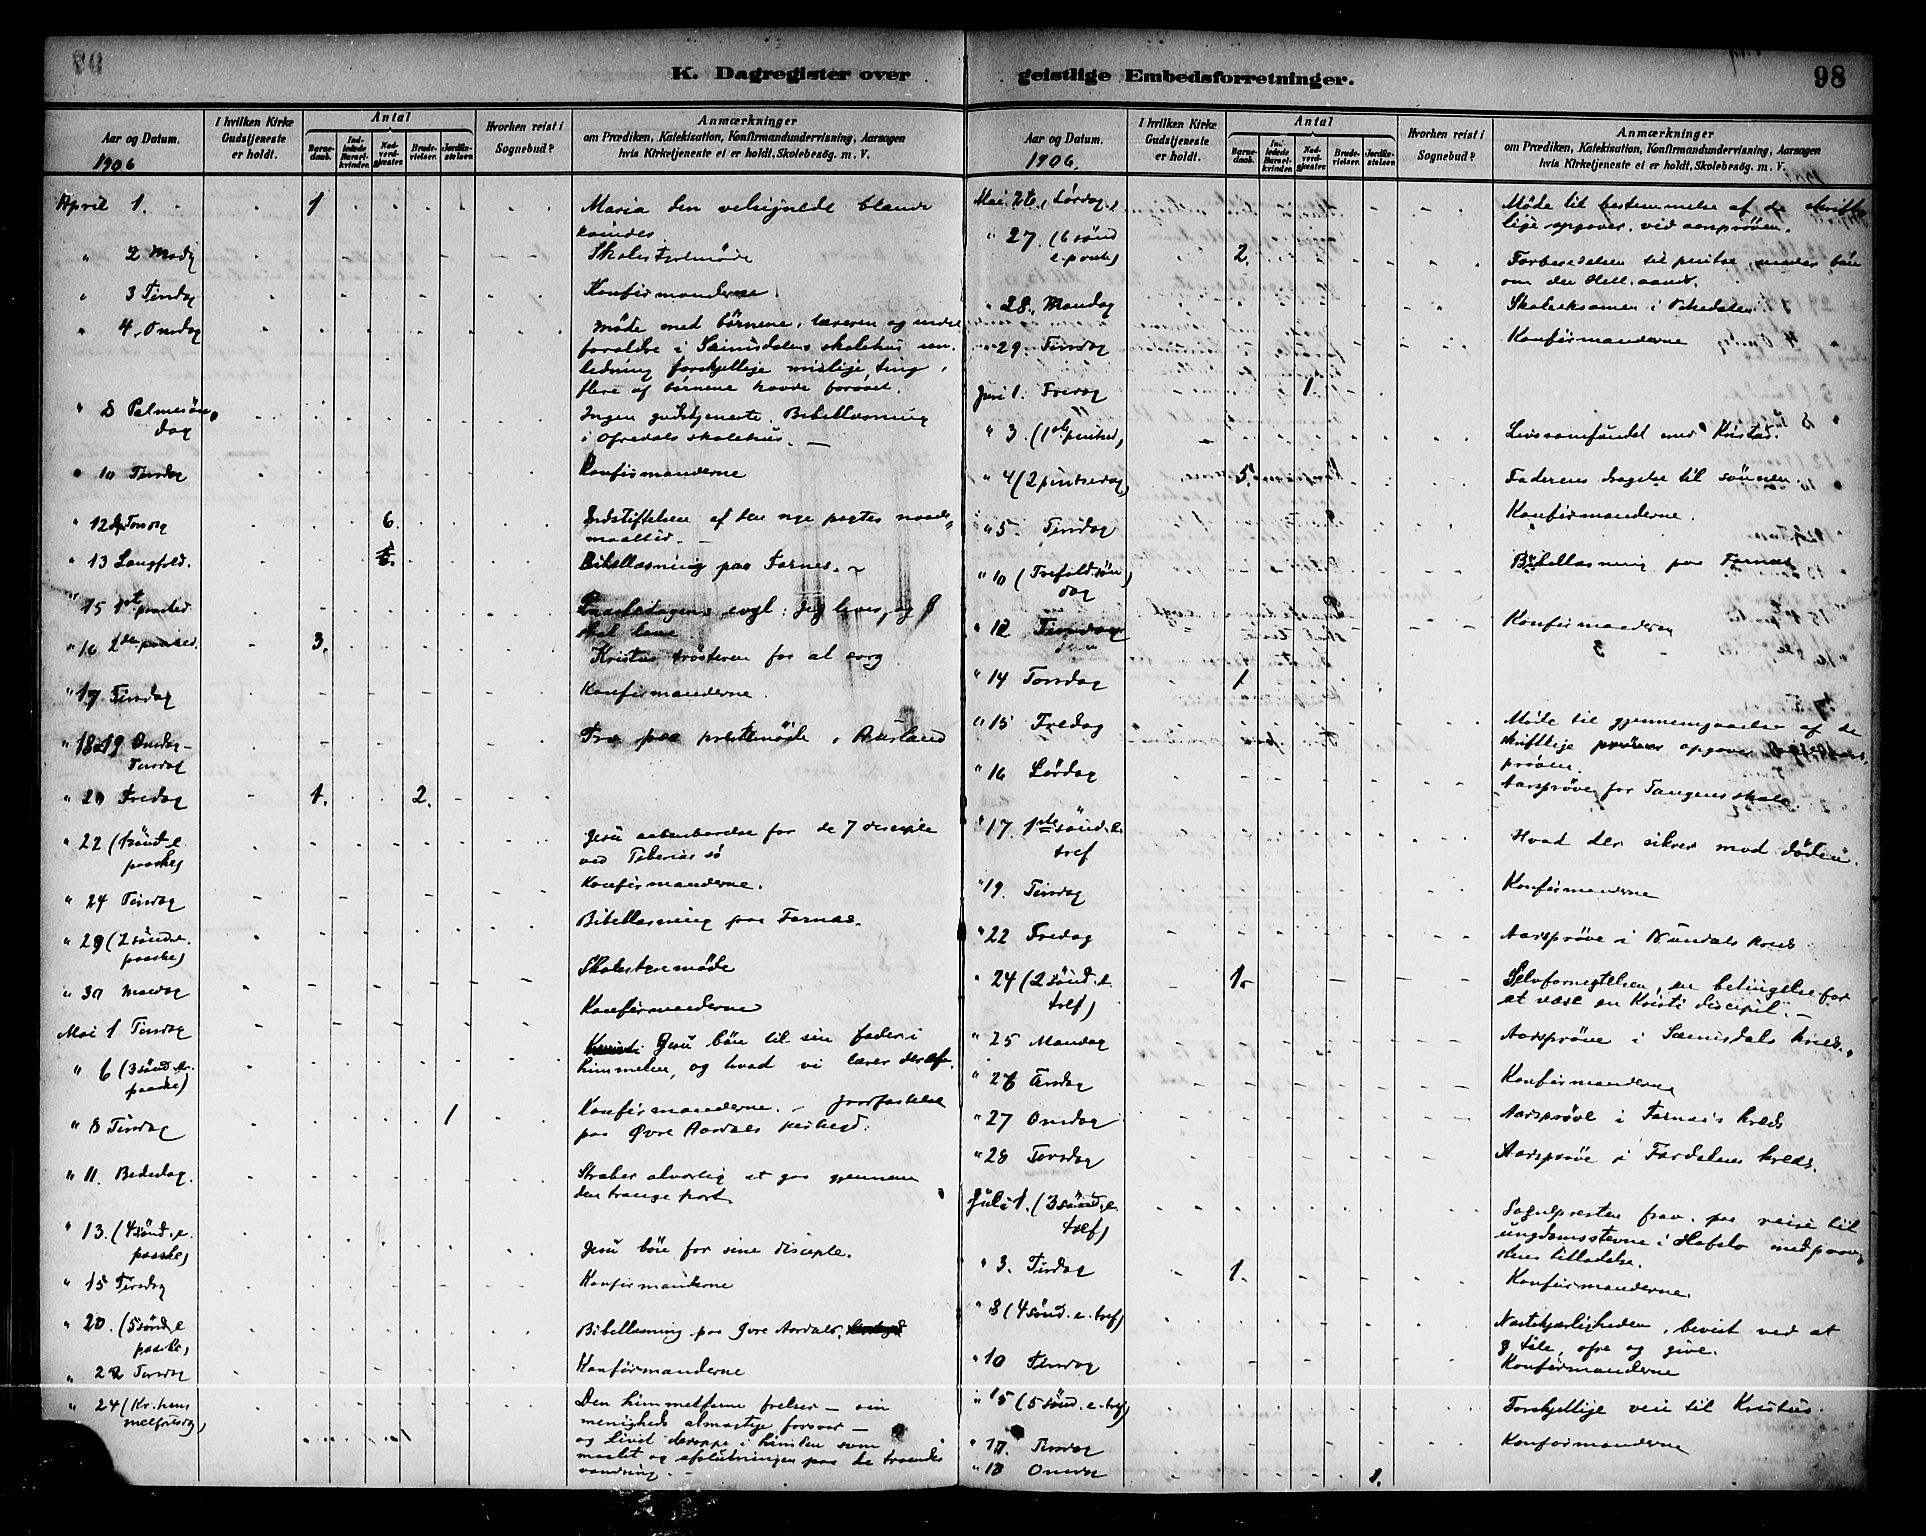 K. Dagregister over
Aar og Datum.
I hvilken Kirke Gudstjeneste er holdt.
Antal
Barnedaab.
Indledede Barselkvinder.
Nadverdgjester.
Brudevielser.
Jordfæstelser.
Hvorhen reist i Sognebud?
Anmærkninger
om Prædiken, Katekisation, Konfirmandundervisning, Aarsagen
hvis Kirketjeneste ei er holdt, Skolebesög. m. V.
1906
April 1. 1 Maria den velsignede blandt
kvinder
" 2 Mandag Skolestyremöde
" 3 Tirsdag Konfirmanderne.
" 4. Onsdag Möde med börnene, læreren og
foraldre i skolehus
ledning forskjellige mislige ting,
flere af börnene havde forövet.
" 8 Palmesön
dag
Ingen gudstjeneste. Bibellæsning
i Ofredals skolehus. —
" 10 Tirsdag Konfirmanderne
" 12 Torsdag 6. Indstiftelsen af den nye pagtes
maaltid. —
" 13 Langfred. Bibellæsning paa Farnes. ~
" 15 1ste paasked. evgl: Jeg lever, og I
skal leve
" 16 2den paasked. 3. Kristus trösteren for al sorg
" 17 Tirsdag Konfirmanderne.
" 18-19 Onsdag -
Torsdag
paa prestemöde i Aurland
" 20 Fredag 1. 2.
" 22 (1sönd. e.
paaske)
Jesu aabenbarelse for de 7 disciple
ved Tiberias sö
" 24 Tirsdag Konfirmanderne.
" 29 (2 sönd. e.
paaske)
Bibellæsning paa Farnes.
" 30 Mandag Skolestyremöde
Mai 1 Tirsdag Konfirmanderne
" 6 (3 sönd. e.
paaske)
Jesu bön til sin fader i
himmelen, og hvad vi lærer deraf.
" 8 Tirsdag 1 Konfirmanderne. - Jordfæstelse
paa Øvre Aardals
" 11. Bededag. Stræber alvorlig at gaa gjennem
den trange port
" 13. (4 sönd. e.
paaske)
Jesu bön for sine disciple.
" 15 Tirsdag Konfirmanderne
" 20. (5 sönd. e
paaske)
Bibellæsning paa Øvre Aardal.
" 22 Tirsdag Konfirmanderne
" 24 (Kr. him
melfartsdag)
Den himmelfarne frelser - sin
menigheds almægtige forsvar —
og livet deroppe i himlen som
maalet og afslutningen paa de troendes
vandring. —
geistlige Embedsforretninger.
98
Aar og Datum.
I hvilken Kirke Gudstjeneste er holdt.
Antal
Barnedaab.
Indledede Barselkvinder.
Nadverdgjester.
Brudevielser.
Jordfæstelser.
Hvorhen reist i Sognebud?
Anmærkninger
om Prædiken, Katekisation, Konfirmandundervisning, Aarsagen
hvis Kirketjeneste ei er holdt, Skolebesög. m. V.
1906.
Mai 26, Lördag. Möde til bestemmelse af de skrift
lige opgaver ved aarspröven.
" 27. (6 sönd
e. paaske)
2. Forberedelsen til pintse, under bön
om den Hell. aand.
" 28. Mandag Skoleeksamen i Ofredalen
" 29. Tirsdag Konfirmanderne
Juni 1. Fredag 1.
" 3 (1ste pintsed) Livssamfundet med Kristus.
" 4 (2 pintsedag) 5. Faderens dragelse til sönnen
" 5. Tirsdag Konfirmanderne.
" 10 (Trefoldsön
dag)
Bibellæsning paa Farnes
" 12 Tirsdag Konfirmanderne
" 14 Torsdag 1
" 15 Fredag Möde til gjennemgaaelse af de
skriftlige opgaver
pröven.
" 16 Lördag Aarspröve for Tangens skole
" 17. 1ste sönd. e.
tref
Hvad der sikrer mod döden.
" 19. Tirsdag Konfirmanderne
" 22 Fredag Aarspröve i kreds
" 24 (2 sönd. e.
tref)
1. Selvfornegtelsen, en betingelse for
at være en Kristi discipel. —
" 25 Mandag Aarspröve i kreds.
" 26 Tirsdag Konfirmanderne
" 27 Onsdag Aarspröve i Farnæs kreds
" 28 Torsdag Aarspröve i Fardalens kreds.
Juli 1. (3 sönd. e.
tref)
Sognepresten frav. paa reise til
ungdomsstevne i Hafslo med prov
stens tilladelse.
" 3. Tirsdag 1. Konfirmanderne.
" 8 (4 sönd. e. tref) Næstekjærligheden, bevist ved at
taale, ofre og give.
" 10 Tirsdag Konfirmanderne
" 15 (5 sönd. e. tref) Forskjellige veie til Kristus.
" 17. Tirsdag Konfirmanderne
" 18 Onsdag 1.